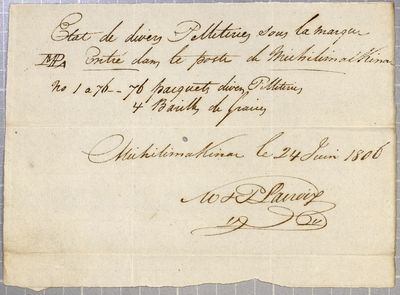 Etat de divers Pelleteries sous la marque
Entré dans le poste de Michilimakinac
No 1 a 76 - 76 pacquets divers Pelleteries
4 Barills de
Michilimakinac le 24 Juin 1806